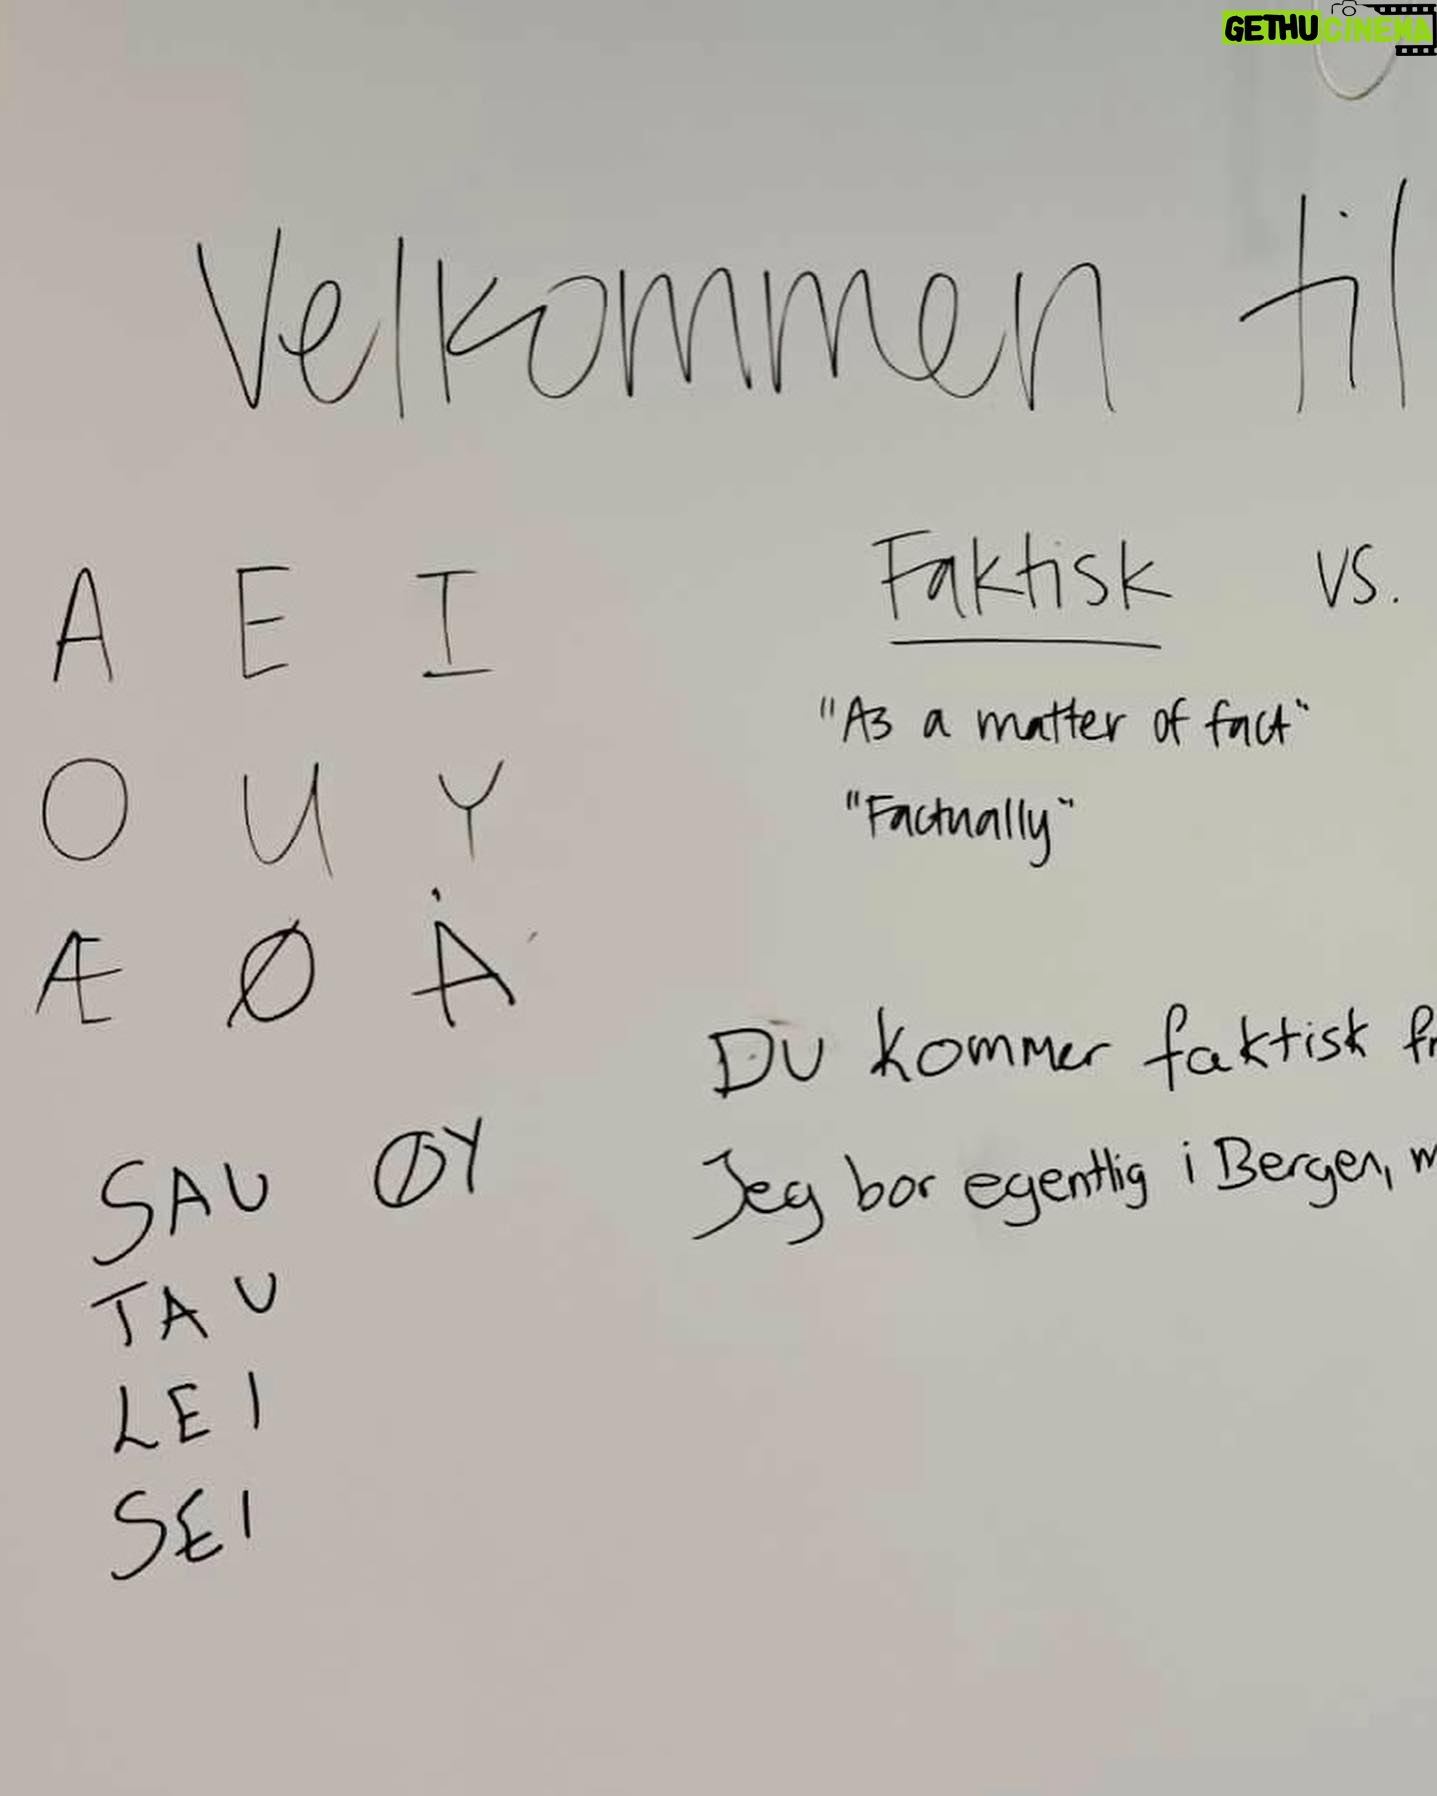 GETHUCINEMA
Velkommen til
A E I
O U Y
Æ Ø Å
SAU ØY
TAU
LEI
SEI
Faktisk vs.
"As a matter of fact"
"Factually"
Du kommer faktisk fr
Jeg bor egentlig i Bergen, m